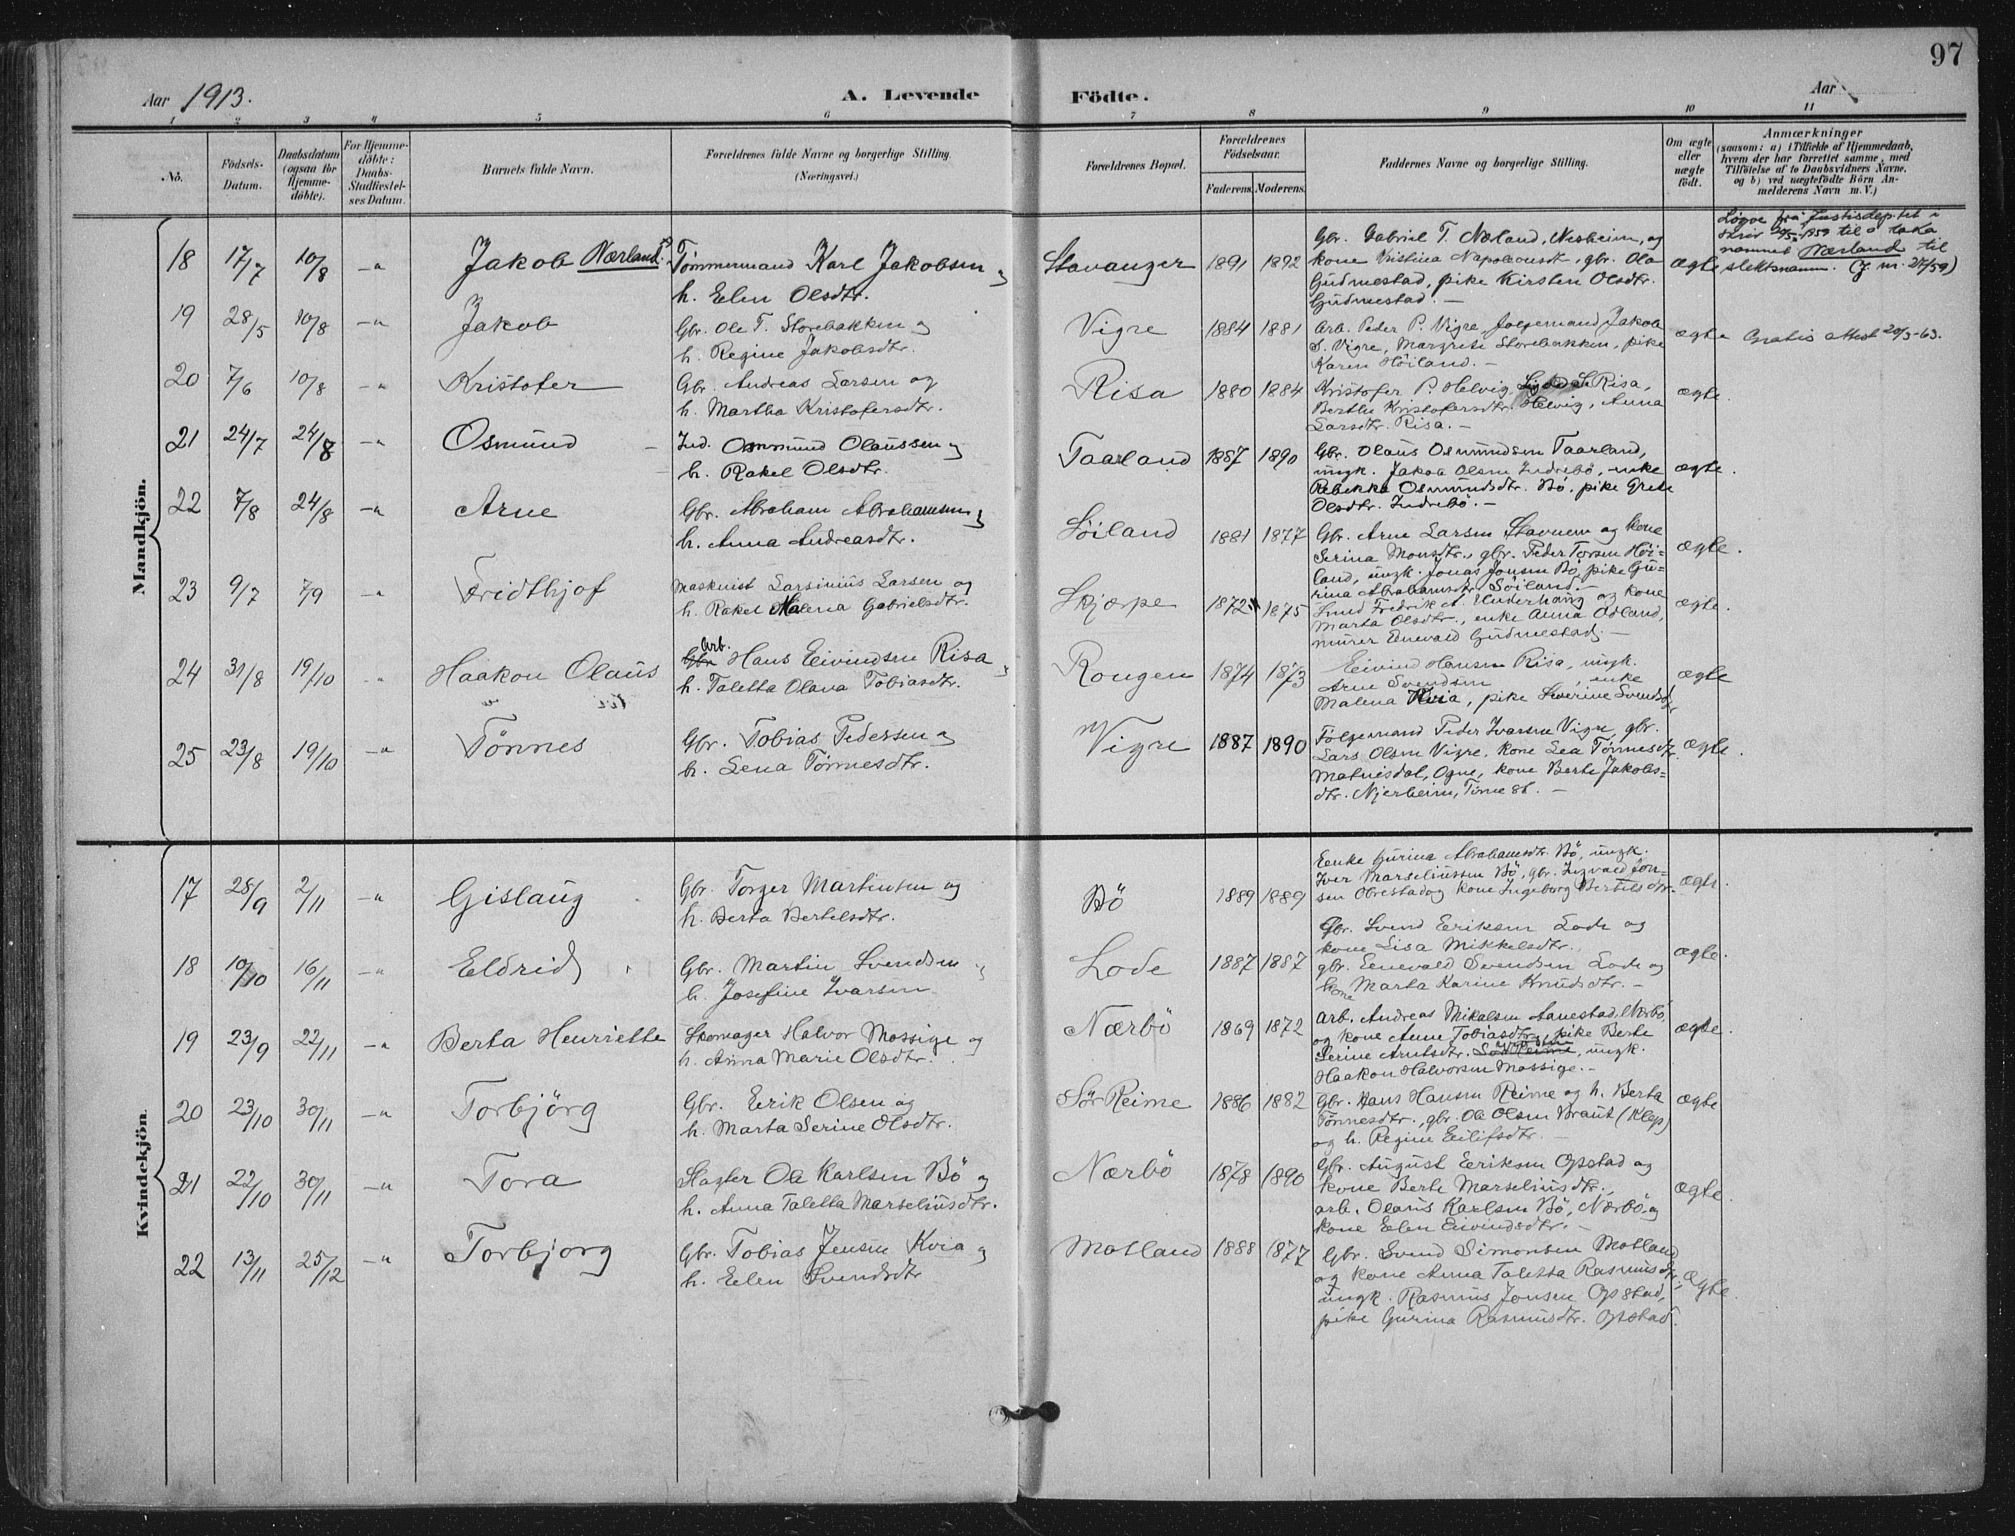 97
Aar 1913.
A. Levende Födte.
Aar
1 2 3 4 5 6 7 8 9 10 11
No.
Födsels-Datum.
Daabsdatum (ogsaa for Hjemmedöbte).
For Hjemmedöbte: Daabs-Stadfæstelses Datum.
Barnets fulde Navn.
Forældrenes fulde Navne og borgerlige Stilling.
(Næringsvei.)
Forældrenes Bopæl.
Forældrenes Födselsaar.
Faderens. Moderens.
Faddernes Navne og borgerlige Stilling.
Om ægte eller uægte födt.
Anmærkninger
(saasom: a) i Tilfælde af Hjemmedaab, hvem der har forrettet samme, med Tilföielse af to Daabsvidners Navne, og b) ved uægtefödte Börn Anmelderens Navn m. V.)
Mandkjön.
18 17/7 10/8 -"- Jakob Nærland
Tømmermand Karl Jakobsen og
h. Elen Olsdtr.
Stavanger 1891 1892
Gbr. Gabriel T. Næland, Nesheim, og
kone Kristina Napoleonsdt., gbr. Ola
Gudmestad, pike Kirsten Olsdtr.
Gudmestad. —
ægte
Løyve frå Justisdep.tet i
skriv 20/5-1959 til å taka
namnet Nærland til
slektsnamn. (J. nr. 27/59)
19 28/5 10/8 -"- Jakob
Gbr. Ole T. Storebakken og
h. Regine Jakobsdtr.
Vigre 1884 1881
Arb. Peder P. Vigre, Følgemand Jakob
S. Vigre, Margrete Storebakken, pike
Karen Höiland. —
ægte
Gratis attest 20/3-63.
20 7/6 10/8 -"- Kristofer
Gbr. Andreas Larsen og
h. Martha Kristofersdtr.
Risa 1880 1884
Kristofer P. Helvig, Risa,
Berthe Kristofersdtr. Helvig, Anna
Larsdtr. Risa. —
ægte.
21 24/7 24/8 -"- Osmund
Ind. Osmund Olaussen og
h. Rakel Olsdtr.
Taarland 1887 1890
Gbr. Olaus Osmundsen Taarland,
ungk. Jakob Olsen Indrebö, enke
Rebekka Osmundsdtr. Bö, pike Grete
Olsdtr. Indrebö. —
ægte.
22 7/8 24/8 -"- Arne
Gbr. Abraham Abrahamsen og
h. Anna Andreasdtr.
Söiland 1881 1877
Gbr. Arne Larsen Stavnem og kone
Serina Monsdtr., gbr. Peder Torsen Höi-
land, ungk. Jonas Jonsen Bö, pike Gu-
rina Abrahamsdtr. Söiland. —
ægte.
23 9/7 7/9 -"- Fridthjof
Maskinist Larsinius Larsen og
h. Rakel Malena Gabrielsdtr.
Skjærpe 1872 1875
Smed Fredrik A. Underhaug og kone
Marta Olsdtr., enke Anna Ödland,
murer Enevald Gudmestad. —
ægte.
24 31/8 19/10 " Haakon Olaus
Arb.
Gbr. Hans Eivindsen Risa og
h. Taletta Olava Tobiasdtr.
Rongen 1874 1873
Eivind Hansen Risa, ungk.
Arne Svendsen, enke
Malena Kvia, pike Severine Svendsdtr
ægte
25 23/8 19/10 -"- Tönnes
Gbr. Tobias Pedersen og
h. Lena Tönnesdtr.
Vigre 1887 1890
Følgemand Peder Ivarsen Vigre, gbr.
Lars Olsen Vigre, kone Lea Tönnesdtr.
Matnisdal, Ogne, kone Berte Jakobs-
dtr. Njerheim, Time st. —
ægte.
Kvindekjön.
17 28/9 2/11 -"- Gislaug
Gbr. Torger Martinsen og
h. Berta Bertelsdtr.
Bö 1889 1889
Enke Gurina Abrahamsdtr. Bö, ungk.
Iver Marseliussen Bö, gbr. Ingvald Jon-
sen Obrestad og kone Ingeborg Bertelsdtr.
ægte.
18 10/10 16/11 -"- Eldrid
Gbr. Martin Svendsen og
h. Josefine Ivarsen
Lode 1887 1887
Gbr. Svend Eriksen Lode og
kone Lisa Mikkelsdtr.,
gbr. Enevald Svendsen Lode og
kone Marta Karine Knudsdtr. —
ægte.
19 23/9 22/11 -"- Berta Henriette
Skomager Halvor Mossige og
h. Anna Marie Olsdtr.
Nærbö 1869 1872
Arb. Andreas Mikalsen Aanestad, Nærbö,
og kone Anne Tobiasdtr., pike Berte
Serine Arntsdtr. Sör Reime, ungk.
Haakon Halvorsen Mossige. —
ægte.
20 23/10 30/11 -"- Torbjörg
Gbr. Erik Olsen og
h. Marta Serine Olsdtr.
Sör Reime 1886 1882
Gbr. Hans Hansen Reime og h. Berta
Tönnesdtr., gbr. Ole Olsen Braut (Klep)
og h. Regine Eilifsdtr. —
ægte
21 22/10 30/11 -"- Tora
Slagter Ole Karlsen Bö og
h. Anna Taletta Marseliusdtr.
Nærbö 1878 1890
Gbr. August Eriksen Opstad og
kone Berte Marseliusdtr.,
arb. Olaus Karlsen Bö, Nærbö, og
kone Elen Eivindsdtr. —
ægte.
22 13/11 25/12 -"- Torbjorg
Gbr. Tobias Jensen Kvia og
h. Elen Svendsdtr
Motland 1888 1877
Gbr. Svend Simonsen Motland
og kone Anna Taletta Rasmusdtr.,
ungk. Rasmus Jonsen Opstad,
pike Gurina Rasmusdtr. Opstad.
ægte.